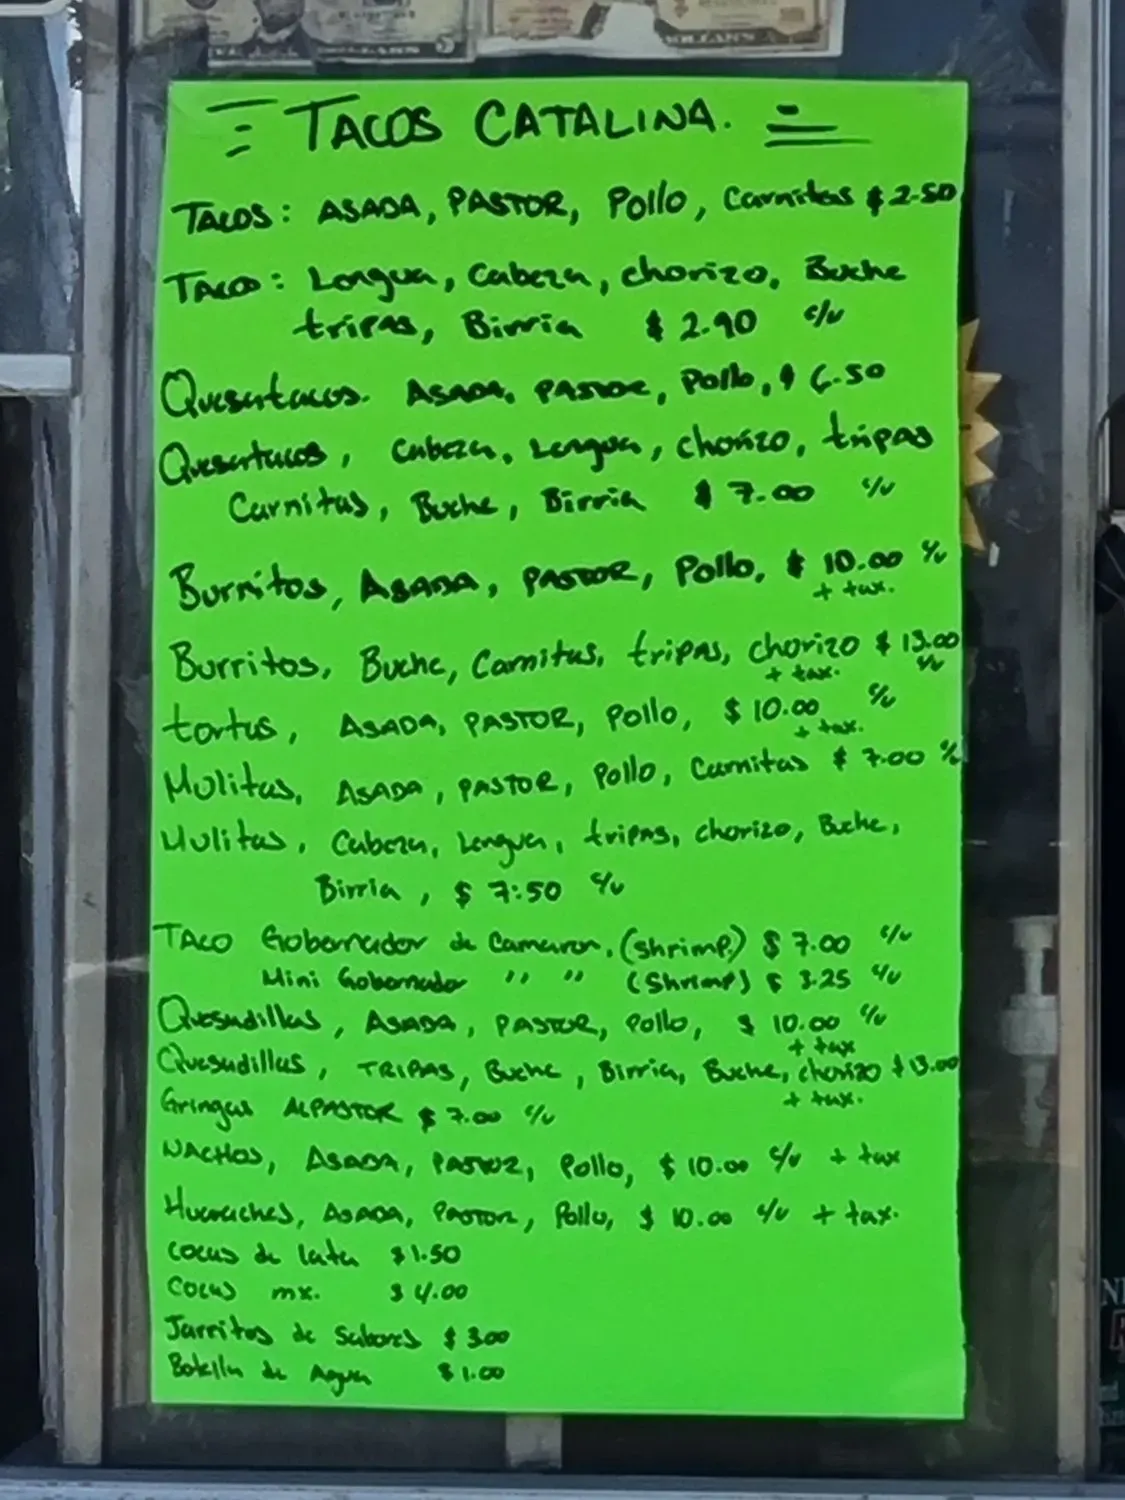 DOLLARS
DOLLARS
TACOS CATALINA.
TACOS: ASADA, PASTOR, Pollo, Carnitas $2.50
TACO: Lengua, Cabeza, chorizo, Buche
tripas, Birria $2.90 c/u
Quesatacos. ASADA, PASTOR, Pollo, $6.50
Quesatacos, Cabeza, Lengua, chorizo, tripas
Carnitas, Buche, Birria $7.00 c/u
Burritos, ASADA, PASTOR, Pollo, $10.00 c/u
+ tax.
Burritos, Buche, Carnitas, tripas, chorizo $13.00
+ tax. c/u
tortas, ASADA, PASTOR, Pollo, $10.00 c/u
+ tax.
Mulitas, ASADA, PASTOR, Pollo, Carnitas $7.00 c/u
Mulitas, Cabeza, Lengua, tripas, chorizo, Buche,
Birria, $7:50 c/u
TACO Gobernador de Camaron, (shrimp,) $7.00 c/u
Mini Gobernador " " (Shrimp) $3.25 c/u
Quesadillas, ASADA, PASTOR, Pollo, $10.00 c/u
+ tax
Quesadillas, TRIPAS, Buche, Birria, Buche, chorizo $13.00
+ tax.
Gringas ALPASTOR $7.00 c/u
NACHOS, ASADA, PASTOR, Pollo, $10.00 c/u + tax
Huaraches, ASADA, PASTOR, Pollo, $10.00 c/u + tax.
Cocas de lata $1.50
Cocas mx. $4.00
Jarritos de Sabores $3.00
Botella de Agua $1.00